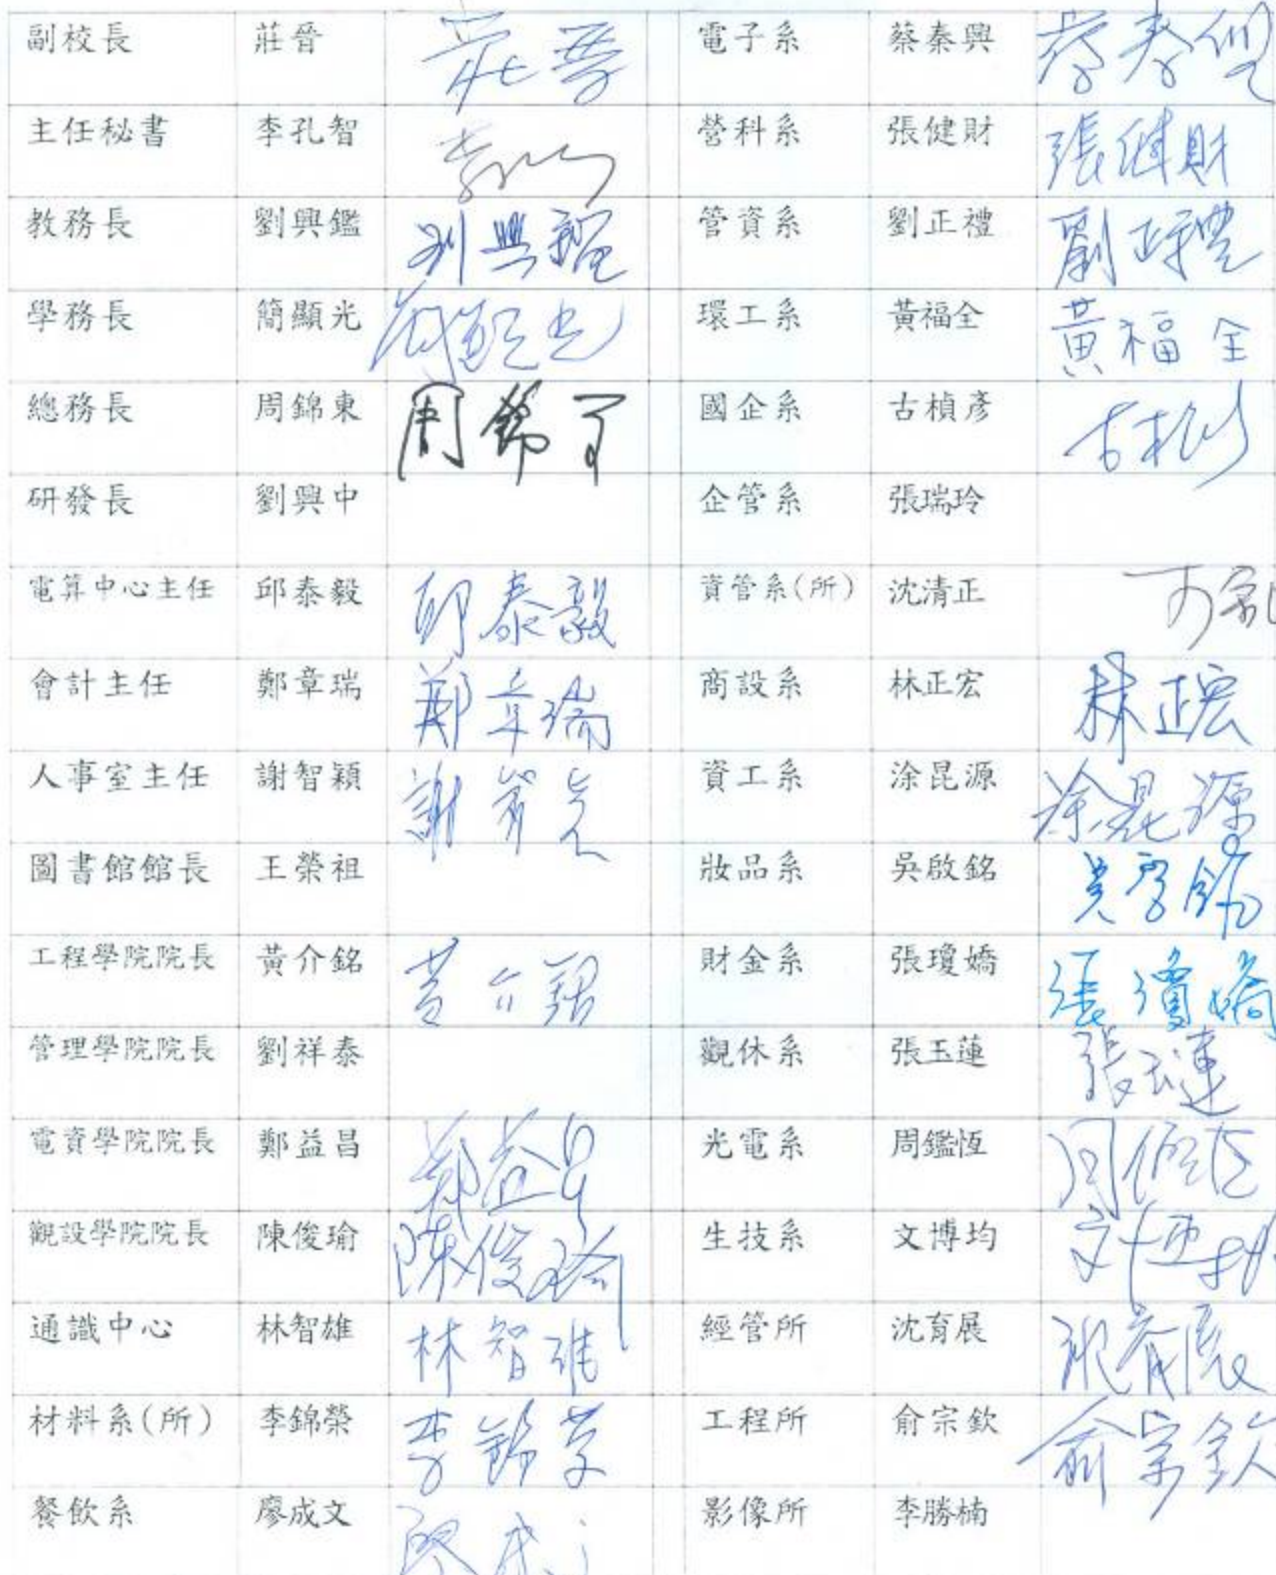 副校長 莊晉 莊晉 電子系 蔡秦興 蔡秦興
主任秘書 李孔智 營科系 張健財 張健財
教務長 劉興鑑 刘興鑑 管資系 劉正禮 劉正禮
學務長 簡顯光 簡顯光 環工系 黃福全 黃福全
總務長 周錦東 周錦東 國企系 古楨彥
研發長 劉興中 企管系 張瑞玲
電算中心主任 邱泰毅 邱泰毅 資管系(所) 沈清正
會計主任 鄭章瑞 鄭章瑞 商設系 林正宏 林正宏
人事室主任 謝智穎 資工系 涂昆源 涂昆源
圖書館館長 王榮祖 妝品系 吳啟銘
工程學院院長 黃介銘 黃介銘 財金系 張瓊嬌 張瓊嬌
管理學院院長 劉祥泰 觀休系 張玉蓮 張玉蓮
電資學院院長 鄭益昌 鄭益昌 光電系 周鑑恆
觀設學院院長 陳俊瑜 陳俊瑜 生技系 文博均
通識中心 林智雄 林智雄 經管所 沈育展 沈育展
材料系(所) 李錦榮 李錦荣 工程所 俞宗欽 俞宗欽
餐飲系 廖成文 影像所 李勝楠